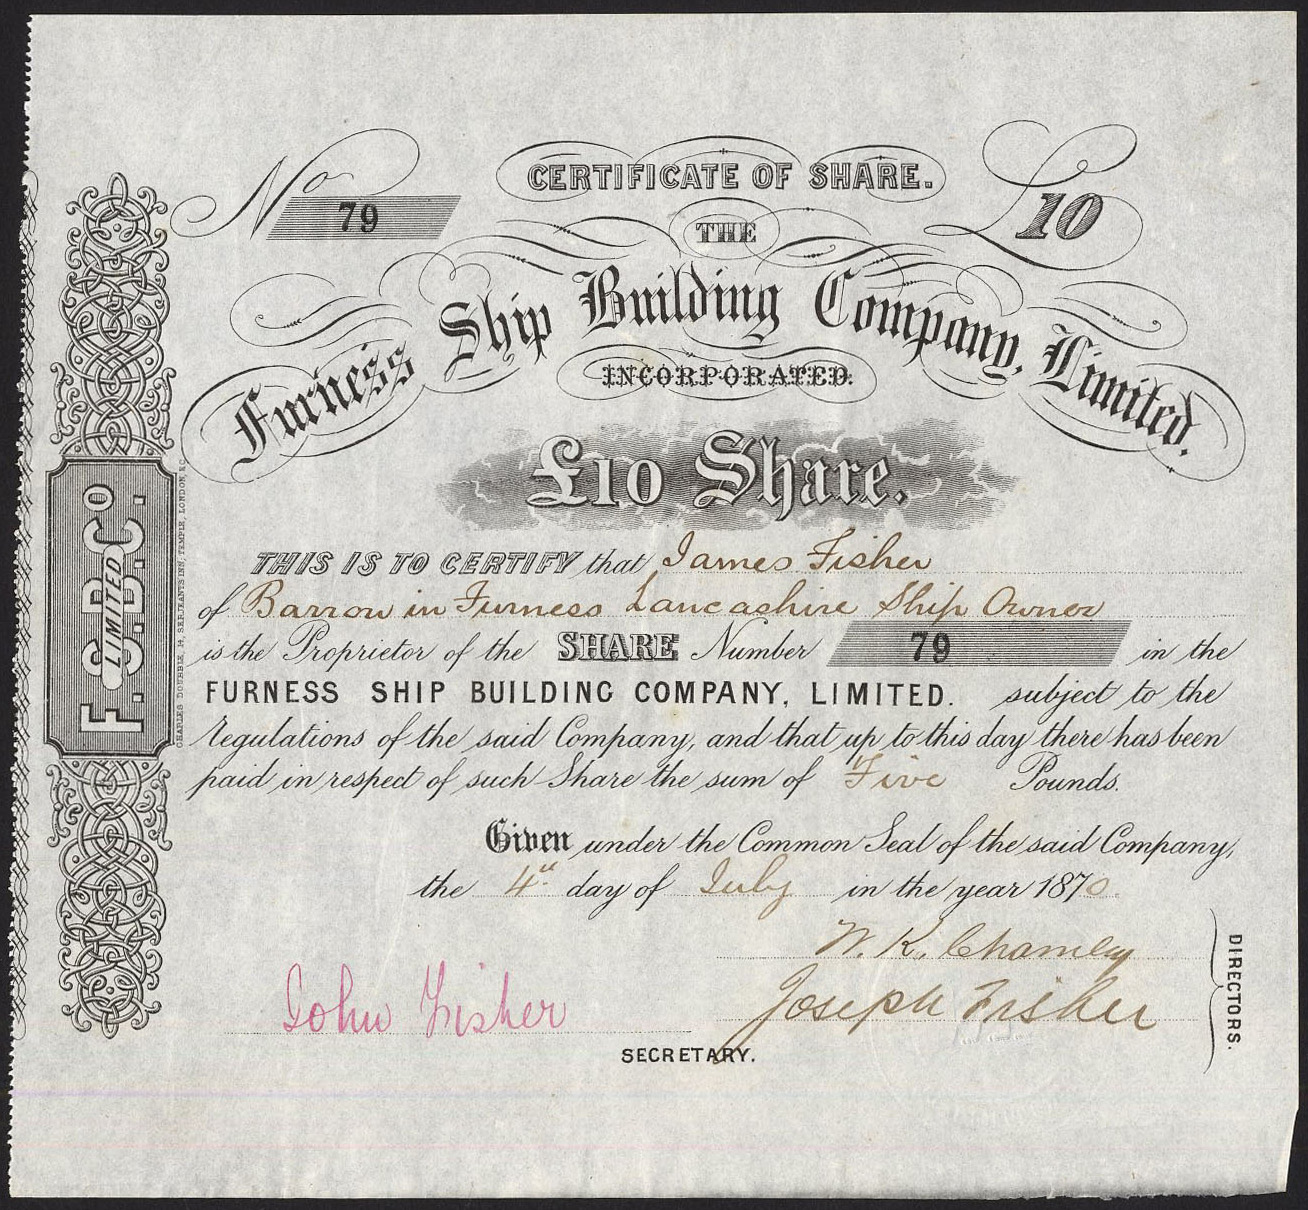 No 79
CERTIFICATE OF SHARE.
£10
THE
Furness Ship Building Company, Limited.
INCORPORATED.
£10 Share.
THIS IS TO CERTIFY that James Fisher
of Barrow in Furness Lancashire Ship Owner
is the Proprietor of the SHARE Number 79 in the
FURNESS SHIP BUILDING COMPANY, LIMITED. subject to the
regulations of the said Company, and that up to this day there has been
paid in respect of such Share the sum of Five Pounds.
Given under the Common Seal of the said Company,
the 4th day of July in the year 1870.
W. K. Chamley
Joseph Fisher
DIRECTORS.
John Fisher
SECRETARY.
F.S.B.Co.
LIMITED
CHARLES DOURBIE, 14, SERJEANTS INN, TEMPLE, LONDON, E.C.